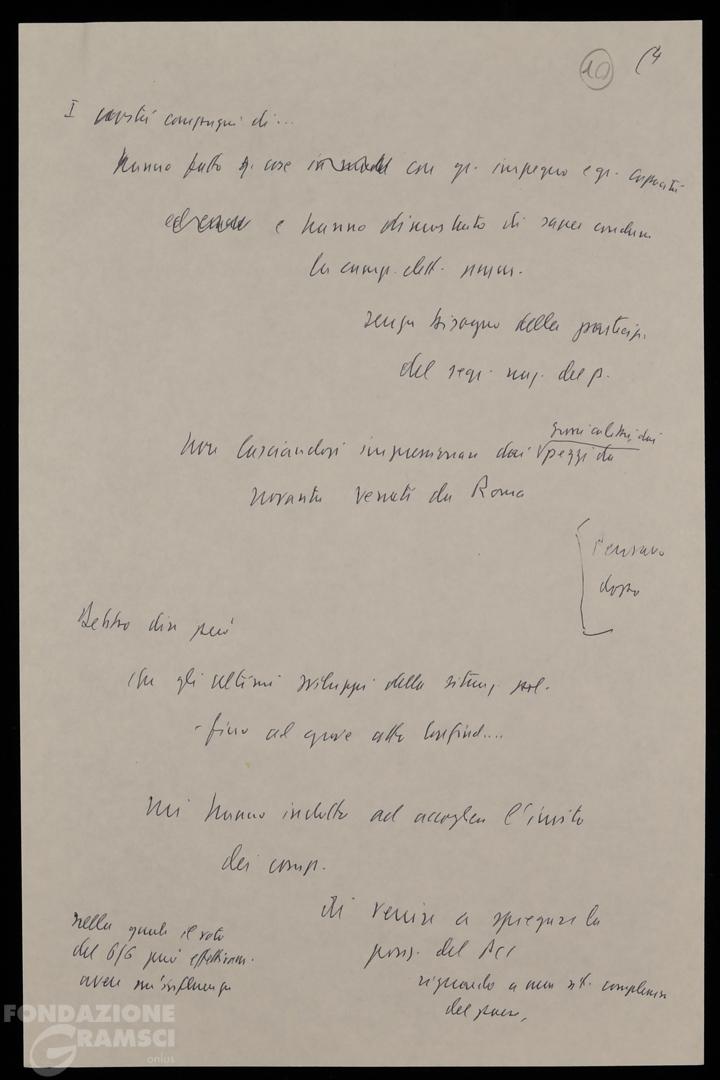 10 (4
I nostri compagni di...
hanno fatto q. cose con gr. impegno e gr. capacità
e hanno dimostrato di saper condurre
la camp. elett. amm.
senza bisogno della particip.
del segr. naz. del p.
non lasciandosi impressionare dai
novanta venuti da Roma
Pensavo
dopo
Debbo dire però
che gli ultimi sviluppi della situaz. pol.
- fino al grave atto Confind....
mi hanno indotto ad accogliere l'invito
dei comp.
di venire a spiegare la
posiz. del PCI
riguardo a una sit. complessiva
del paese,
nella quale il voto
del 6/6 può effettivam.
avere un'influenza
FONDAZIONE
GRAMSCI
onlus